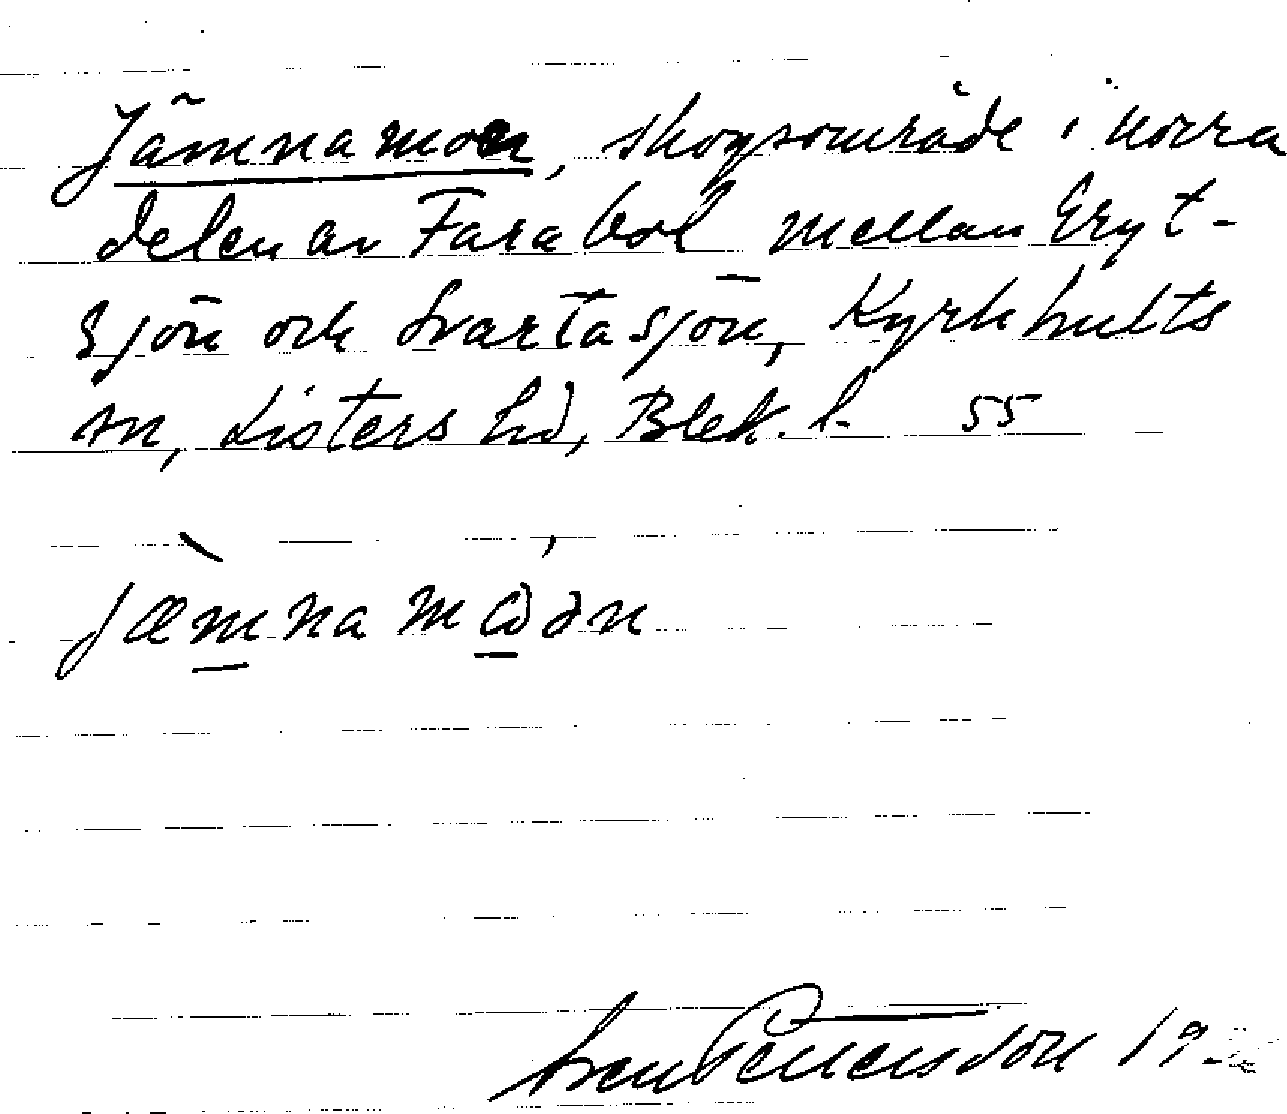 Jämnamoen, skogsområde i norra
delen av Farabol mellan Gryt-
sjön och Svartasjön, Kyrkhults
sn, Listers hd, Blek. l. 55
Sven Pettersson